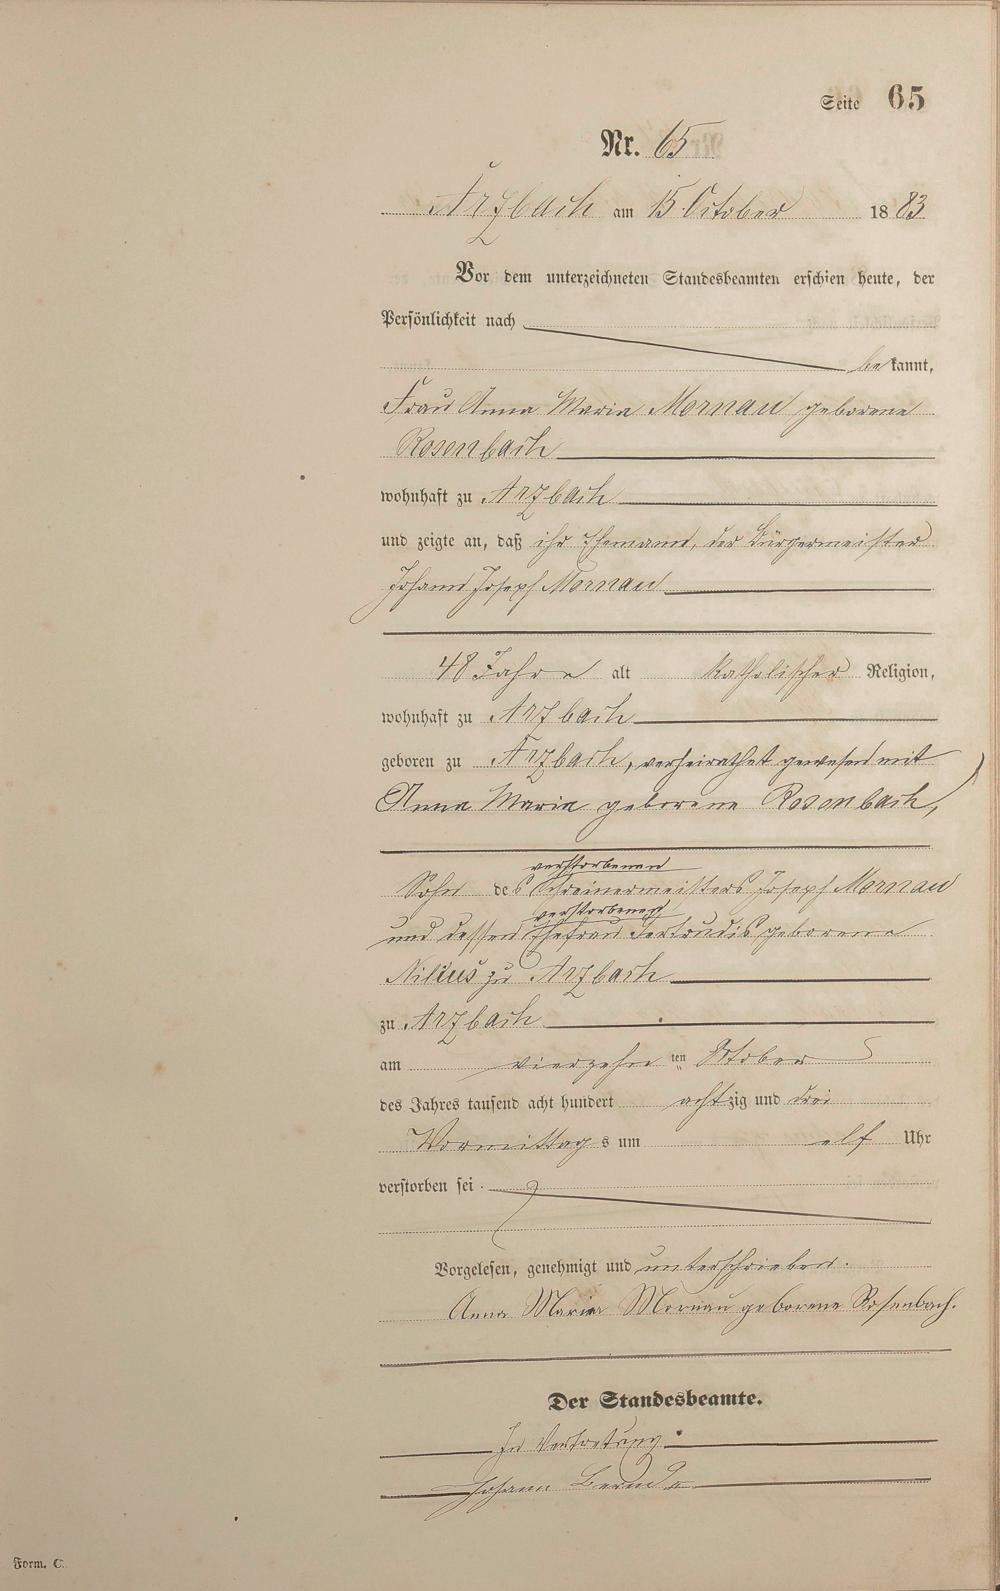 Seite 65
Nr. 65
Arzbach am 15. October 1883
Vor dem unterzeichneten Standesbeamten erschien heute, der
Persönlichkeit nach
bekannt,
Frau Anna Maria Mornau geborene
Rosenbach
wohnhaft zu Arzbach
und zeigte an, daß ihr Ehemann, der Bürgermeister
Johann Joseph Mornau
48 Jahre alt katholischer Religion,
wohnhaft zu Arzbach
geboren zu Arzbach, verheirathet gewesen mit
Anna Maria geborene Rosenbach,
verstorbenen
Sohn des Schreinermeisters Joseph Mornau
verstorbenen
und dessen Ehefrau Gertrudis geborene
Nilius zu Arzbach
zu Arzbach
am vierzehnten Oktober
des Jahres tausend acht hundert achtzig und drei
Vormittags um elf Uhr
verstorben sei.
Vorgelesen, genehmigt und unterschrieben.
Anna Maria Mornau geborene Rosenbach.
Der Standesbeamte.
In Vertretung
Johann
Form. C.